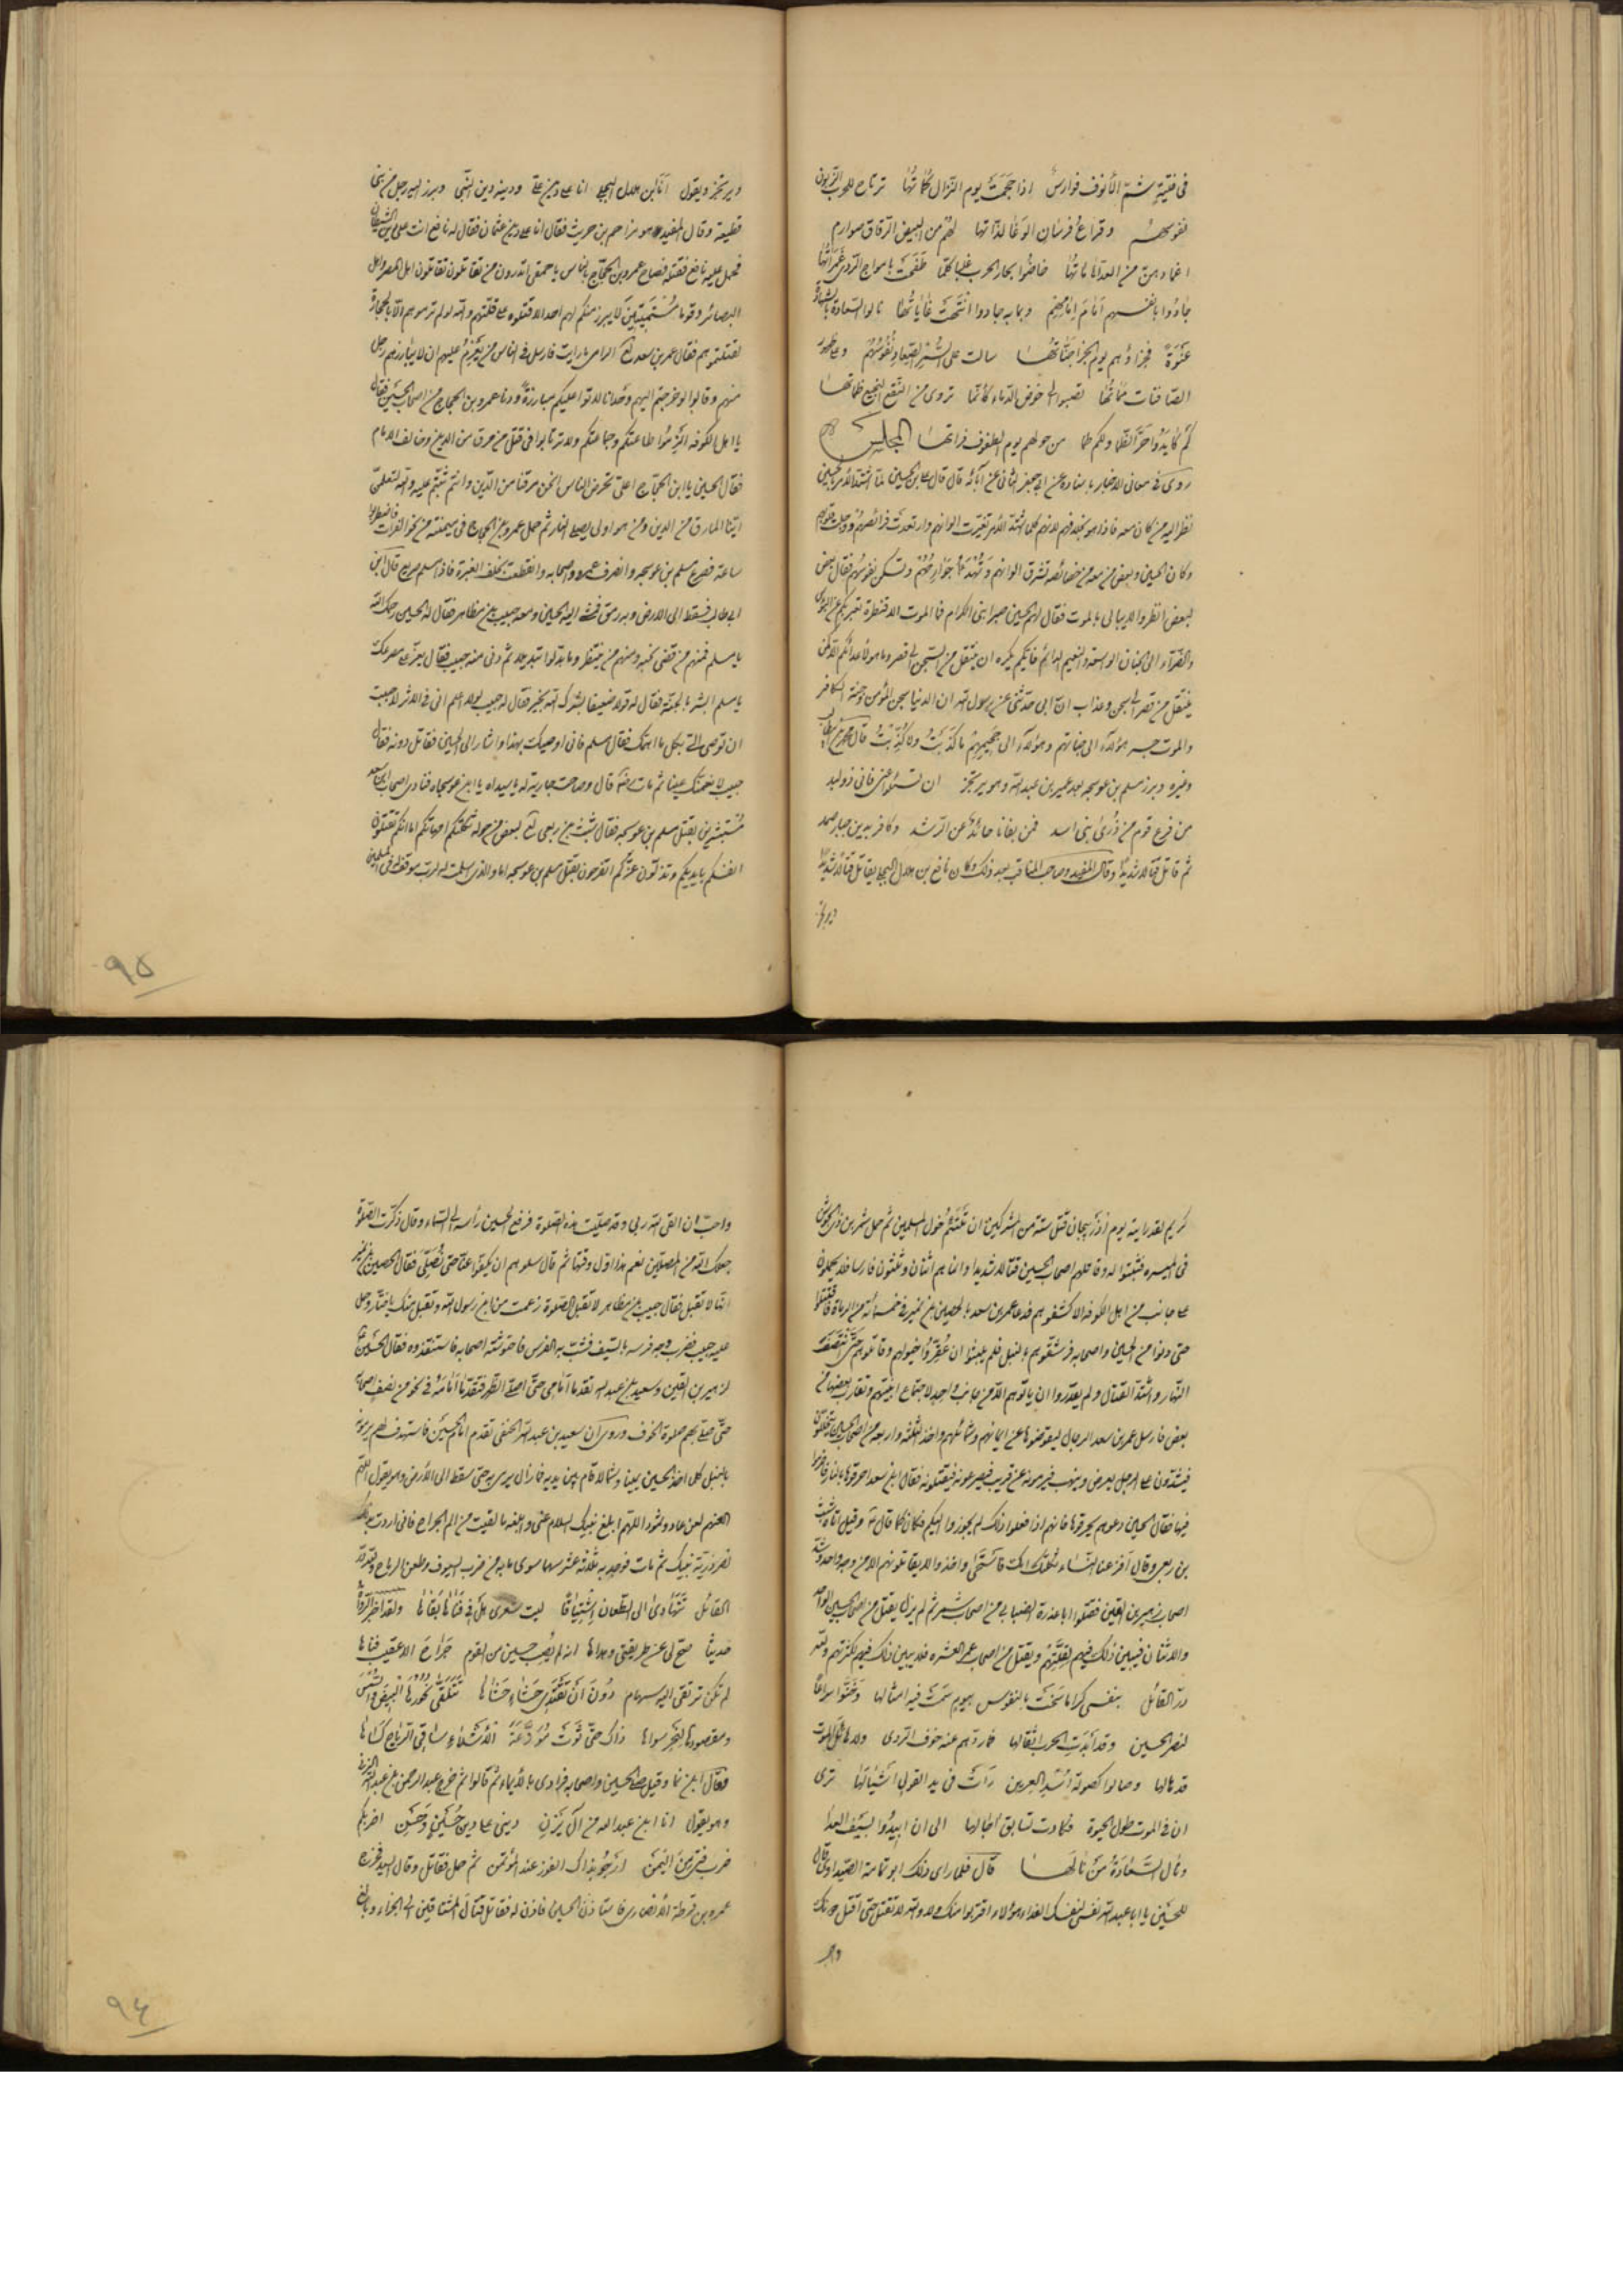 في فتية شمّ الأنوف فوارس اذا حجمت يوم النزال كماتها ترتاح للحرب الزبون
نفوسهم وقراع فرسان الوغا لذاتها لهم من البيض الرقاق صوارم
اغمادهن من العدا خاضوا بحار الحرب غلبا كلما طفحت بامواج الردى غمراتها
جادوا بانفسهم امام امامهم وبما به جادوا انتحت غاياتها نالوا السعادة بالشهادة
عنوة فجزاؤهم يوم الجزا جناتها سالت على نفوسهم وعلى ظهور
الصافنات مماتها تصبوا الى خوض الدماء كانما تروى من النقع النجيع ظماتها
كم كابدوا حر الظما ولكم ظما من حولهم يوم الطفوف فراتها المجلس
روى في معاني الاخبار باسناده عن ابي جعفر الثاني عن آبائه قال قال علي بن الحسين لما اشتد الأمر بالحسين
نظر اليه من كان معه فاذا هو بخلافهم لانهم كلما اشتد الأمر تغيرت الوانهم وارتعدت فرائصهم ووجلت قلوبهم
وكان الحسين وبعض من معه من خصائصه تشرق الوانهم وتهدأ جوارحهم وتسكن نفوسهم فقال بعض
لبعض انظروا لا يبالي بالموت فقال لهم الحسين صبرا بني الكرام فما الموت الا قنطرة تعبر بكم عن البؤس
والضراء الى الجنان الواسعة والنعيم الدائم فايكم يكره ان ينتقل من السجن الى قصر وما هو لأعدائكم الا كمن
ينتقل من قصر الى سجن وعذاب ان ابي حدثني عن رسول الله ان الدنيا سجن المؤمن وجنة الكافر
والموت جسر هؤلاء الى جنانهم وهؤلاء الى جحيمهم ما كذبت ولا كذبت قال محمد بن ابي طالب
وغيره وبرز مسلم بن عوسجه بعد عمير بن عبد الله وهو يرتجز ان تسئلوا عني فاني ذو لبد
من فرع قوم من ذرى بني اسد فمن بغانا حائد عن الرشد وكافر بدين جبار صمد
ثم قاتل قتالا شديدا وقال المفيد وصاحب المناقب بعد ذلك وكان نافع بن هلال البجلي يقاتل قتالا شديدا
ويرتجز
ويرتجز ويقول انا ابن هلال البجلي انا على دين علي ودينه دين النبي وبرز اليه رجل من بني
قطيعة وقال المفيد هو مزاحم بن حريث فقال انا على دين عثمان فقال له نافع انت على دين الشيطان
فحمل عليه نافع فقتله فصاح عمرو بن الحجاج بالناس يا حمقى اتدرون من تقاتلون تقاتلون اهل المصر واهل
البصائر وقوما مستميتين لا يبرز منكم لهم احد الا قتلوه على قلتهم والله لو لم ترموهم الا بالحجارة
لقتلتموهم فقال عمر بن سعد لع الراى ما رايت فارسل في الناس من يعزم عليهم ان لا يبارزهم رجل
منهم وقالوا لو خرجتم اليهم وحدانا لاتوا عليكم مبارزة ودنا عمرو بن الحجاج من اصحاب الحسين فقال
يا اهل الكوفه الزموا طاعتكم وجماعتكم ولا ترتابوا في قتل من مرق من الدين وخالف الامام
فقال الحسين يا ابن الحجاج اعلي تحرض الناس انحن مرقنا من الدين وانتم ثبتم عليه والله لتعلمن
اينا المارق من الدين ومن هو اولى بصلي النار ثم حمل عمرو بن الحجاج في ميمنته من نحو الفرات فاضطربوا
ساعة فصرع مسلم بن عوسجه وانصرف عمرو واصحابه وانقطعت الغبرة فاذا مسلم صريع قال ابن
ابي طالب فسقط الى الارض وبه رمق فمشى اليه الحسين ومعه حبيب بن مظاهر فقال له الحسين رحمك الله
يا مسلم فمنهم من قضى نحبه ومنهم من ينتظر وما بدلوا تبديلا ثم دنى منه حبيب فقال يعز علي مصرعك
يا مسلم ابشر بالجنة فقال له قولا ضعيفا بشرك الله بخير فقال له حبيب لولا اعلم اني في الاثر لاحببت
ان توصي الي بكل ما اهمك فقال مسلم فاني اوصيك بهذا واشار الى الحسين فقاتل دونه فقال
حبيب لانعمنك عينا ثم مات رضه قال وصاحت جارية له يا سيداه يا ابن عوسجاه فنادى اصحاب ابن سعد
مستبشرين بقتل مسلم بن عوسجه فقال شبث بن ربعي لع لبعض من حوله ثكلتكم امهاتكم اما انكم تقتلون
انفسكم بايديكم وتذلون عزكم اتفرحون بقتل مسلم بن عوسجه اما والذي اسلمت له لرب موقف له في المسلمين
٩٥
كريم لقد رايته يوم آذربيجان قتل ستة من المشركين ان تلتئم خيول المسلمين ثم حمل شمر بن ذي الجوشن
في الميسره فثبتوا له وقاتلهم اصحاب الحسين قتالا شديدا وانما هم اثنان وثلثون فارسا فلا يحملون
على جانب من اهل الكوفه الا كشفوهم فدعا عمر بن سعد بالحصين بن نمير في خمسمائه من الرماة فاقتتلوا
حتى دنوا من الحسين واصحابه فرشقوهم بالنبل فلم يلبثوا ان عقروا خيولهم وقاتلوهم حتى انتصف
النهار واشتد القتال ولم يقدروا ان ياتوهم الا من جانب واحد لاجتماع ابنيتهم وتقارب بعضها من
بعض فارسل عمر بن سعد الرجال ليقوضوها عن ايمانهم وشمائلهم واخذ الثلثه والاربعه من اصحاب الحسين يتخللون
فيشدون على الرجل يعرض وينهب فيرمونه عن قريب فيصرعونه فيقتلونه فقال ابن سعد احرقوها بالنار فاضرموا
فيها فقال الحسين دعوهم يحرقوها فانهم اذا فعلوا ذلك لم يجوزوا اليكم فكان كما قال وقيل اتاه شبث
بن ربعي وقال افزعنا النساء ثكلتك امك فاستحى واخذوا لا يقاتلونهم الا من وجه واحد وشد
اصحاب زهير بن القين فقتلوا ابا عذرة الضبابي من اصحاب شمر ثم لم يزل يقتل من اصحاب الحسين الواحد
والاثنان فيبين ذلك فيهم لقلتهم ويقتل من اصحاب عمر العشره فلا يبين ذلك فيهم لكثرتهم ولله
در القائل بنفسي كراما سخت بالنفوس بيوم سمت فيه امثالها وخفوا سراعا
لنصر الحسين وقد ابدت الحرب اثقالها فما ردهم عنه خوف الردى ولا هالهم الموت
قد هالها وصالوا كصولة اسد العرين رات في يد القول اشبالها ترى
ان في الموت طول الحيوة فكادت تسابق آجالها الى ان ابيدوا بسيف العدا
ونال السعادة من نالها قال فلما راى ذلك ابو ثمامة الصيداوي قال
للحسين يا ابا عبد الله نفسي لنفسك الفداء هؤلاء اقتربوا منك ولا والله لا تقتل حتى اقتل دونك
واحب
واحب ان القى الله ربي وقد صليت هذه الصلوة فرفع الحسين رأسه الى السماء وقال ذكرت الصلوة
جعلك الله من المصلين نعم هذا اول وقتها ثم قال سلوهم ان يكفوا عنا حتى نصلي فقال الحصين بن نمير
انها لا تقبل فقال حبيب بن مظاهر لا تقبل الصلوة زعمت من ابن رسول الله وتقبل منك يا ختار وحمل
عليه حبيب فضرب وجه فرسه بالسيف فشب به الفرس فاحتوشته اصحابه فاستنقذوه فقال الحسين
لزهير بن القين وسعيد بن عبد الله تقدما امامي حتى اصلي الظهر فتقدما امامه في نحو من نصف اصحابه
حتى صلى بهم صلوة الخوف وروى ان سعيد بن عبد الله الحنفي تقدم امام الحسين فاستهدف لهم يرمونه
بالنبل كل اخذ الحسين يمينا وشمالا قام بين يديه فما زال يرمى به حتى سقط الى الأرض وهو يقول اللهم
العنهم لعن عاد وثمود اللهم ابلغ نبيك السلام عني وابلغه ما لقيت من الم الجراح فاني اردت بذلك
نصر ذرية نبيك ثم مات فوجد به ثلثة عشر سهما سوى ما به من ضرب السيوف وطعن الرماح ولله در
القائل تتهادى الى الطعان اشتياقا ليت شعرى هل في فناها بقاها ولقد اخبر الرواة
حديثا صح لي عن طريقتي وهداها انه لم يصب حسين من القوم جراح الا عقيب فناها
لم تكن ترتقى اليه سهام دون ان تقتدى حشاه حشاها تتلقى نحورها البيض والسمر
ومقصودها لنحر سواها ذاك حتى ثوت موزعة الأشلاء سافي الرياح كساها
فقال ابن نما وقيل صلى الحسين واصحابه فرادى بالأيماء ثم قالوا ثم خرج عبد الرحمن بن عبد الله اليزني
وهو يقول انا ابن عبد الله من آل يزن ديني على دين حسين وحسن اضربكم
ضرب فتى من اليمن ارجو بذاك الفوز عند المؤتمن ثم حمل فقاتل وقال السيد فخرج
عمرو بن قرطة الأنصاري فاستاذن الحسين فاذن له فقاتل قتال المشتاقين الى الجزاء وبالغ
٩٦